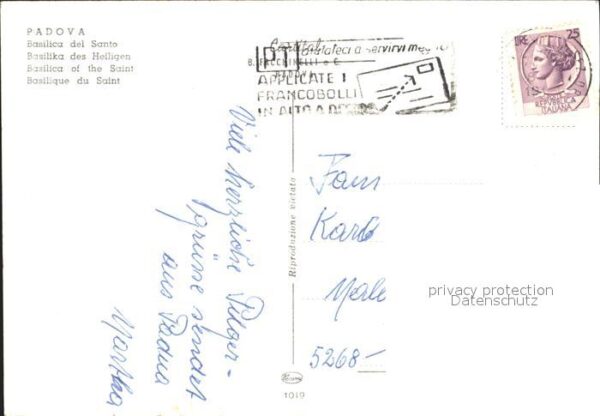 PADOVA
Basilica del Santo
Basilika des Heiligen
Basilica of the Saint
Basilique du Saint
PT
Aiutateci a servirvi meglio
APPLICATE I
FRANCOBOLLI
IN ALTO A DESTRA
LIRE 25
REPVBBLICA
ITALIANA
Viele herzliche Pilger-
grüsse sendet
aus Padua
Martha
Riproduzione vietata
1019
Fam
Karl
5268-
privacy protection
Datenschutz